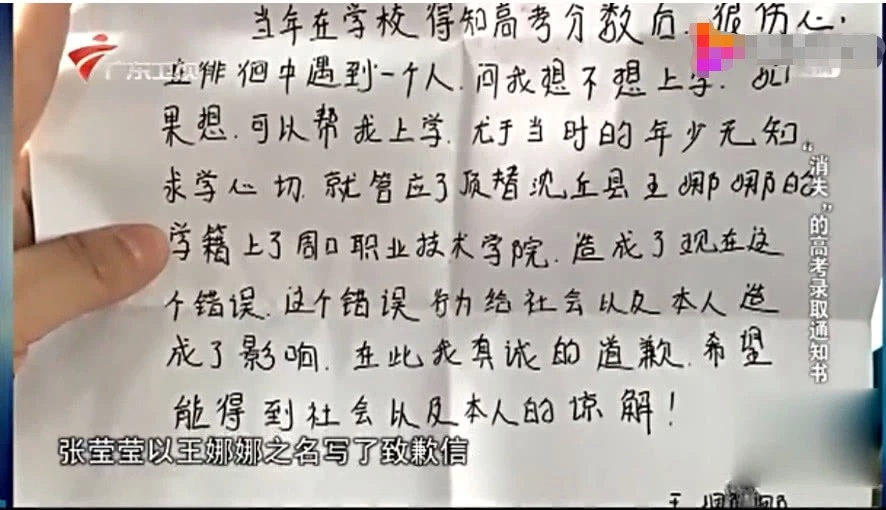 当年在学校得知高考分数后,很伤心,
广东卫视
在徘徊中遇到一个人,问我想不想上学,如
果想,可以帮我上学,尤于当时的年少无知
求学心切,就管应了顶替沈丘县王娜娜的
学籍上了周口职业技术学院,造成了现在这
个错误,这个错误行为给社会以及本人造
成了影响,在此我真诚的道歉,希望
能得到社会以及本人的谅解!
“消失”的高考录取通知书
张莹莹以王娜娜之名写了致歉信
王娜娜